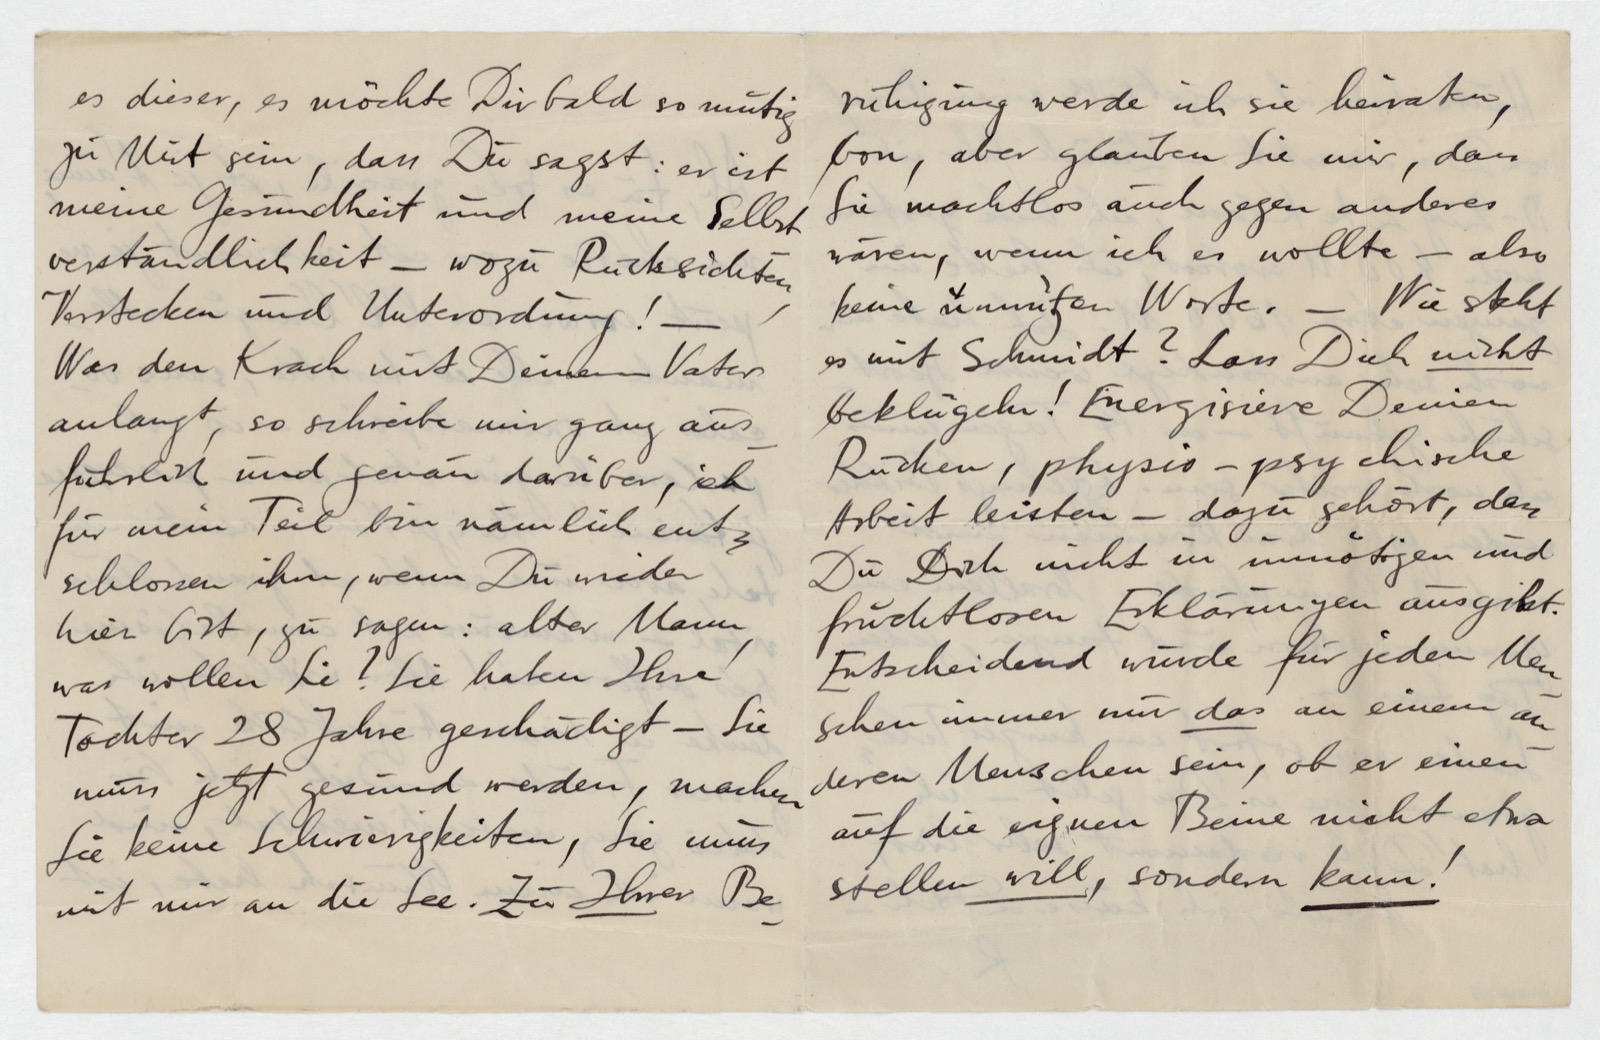 es dieser, es möchte Dir bald so mutig
zu Mut sein, dass Du sagst: er ist
meine Gesundheit und meine Selbst
verständlichkeit – wozu Rücksichten,
Verstecken und Unterordnung! —
Was den Krach mit Deinem Vater
anlangt, so schreibe mir ganz aus-
führlich und genau darüber, ich
für mein Teil bin nämlich ent=
schlossen ihm, wenn Du wieder
hier bist, zu sagen: alter Mann,
was wollen Sie? Sie haben Ihre
Tochter 28 Jahre geschädigt – Sie
muss jetzt gesund werden, machen
Sie keine Schwierigkeiten, Sie muss
mit mir an die See. Zu Ihrer Be-
ruhigung werde ich sie heiraten,
bon, aber glauben Sie mir, dass
Sie machtlos auch gegen anderes
wären, wenn ich es wollte – also
keine unnützen Worte. – Wie steht
es mit Schmidt? Lass Dich nicht
beklügeln! Energisiere Deinen
Rücken, physio-psychische
Arbeit leisten – dazu gehört, dass
Du Dich nicht in unnötigen und
fruchtlosen Erklärungen ausgibst.
Entscheidend würde für jeden Men
schen immer nur das an einem an
deren Menschen sein, ob er einen
auf die eignen Beine nicht etwa
stellen will, sondern kann!